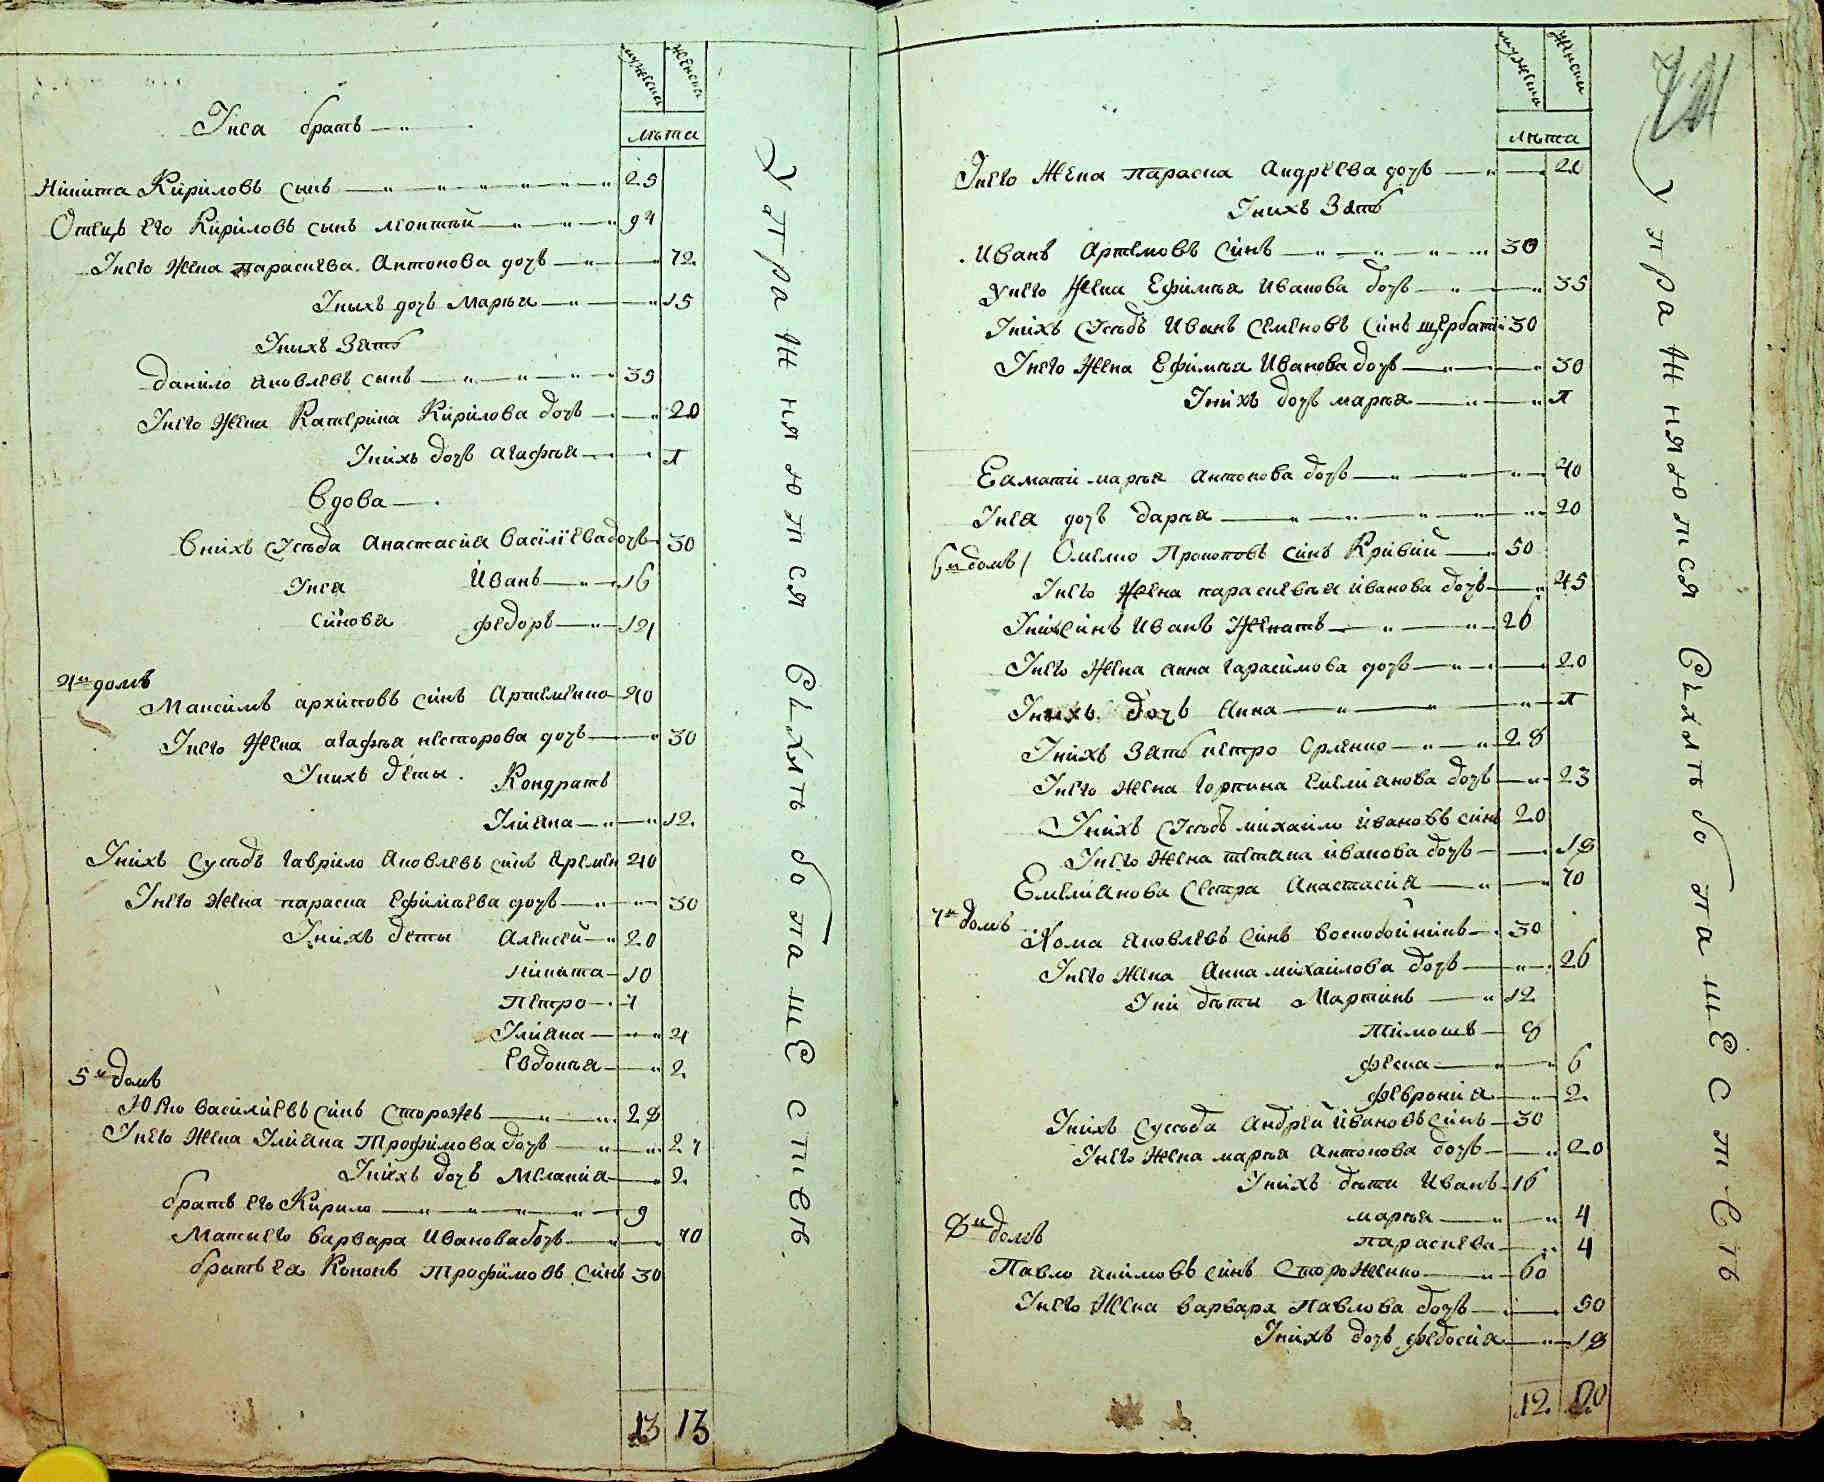 мужеска женска
лѣта
Унеа братъ
Никита Кириловъ сынъ 25
Отецъ его Кириловъ сынъ Леонтий 94
Унего жена Параскева Антонова дочъ 72
Уныхъ дочъ Марья 15
Уныхъ зять
Данило Яковлевъ сынъ 35
Унего жена Катерина Кирилова дочъ 20
Унихъ дочъ Агафья Л
Вдова
Внихъ сусѣда Анастасия Василиева дочъ 30
Унея Иванъ 16
синовя Федоръ 12
4й домъ
Максимъ Архиповъ синъ Артеменко 40
Унего жена Агафья Несторова дочъ 30
Унихъ дети Кондратъ
Улияна 12
Унихъ сусѣдъ Гаврило Яковлевъ синъ Яремен 40
Унего жена Параска Ефимьева дочъ 30
Унихъ дети Алексей 20
Никита 10
Петро 4
Улияна 4
Евдокья 2
5й домъ
Юхно Василиевъ синъ Сторожъ 28
Унего жена Улияна Трофимова дочъ 27
Унихъ дочъ Мелания 2
братъ его Кирило 9
Мать его Варвара Иванова дочъ 70
братъ ея Кононъ Трофимовъ синъ 30
13 13
упражняются
Сѣятьбо
пашество
мужеска женска
лѣта
Унего жена Параска Андреева дочъ 20
Унихъ зять
Иванъ Артемовъ синъ 30
Унего жена Ефимья Иванова дочъ 35
Унихъ сусѣдъ Иванъ Семеновъ синъ Щербатий 30
Унего жена Ефимья Иванова дочъ 30
Унихъ дочъ Марья Л
Еамати Марья Антонова дочъ 40
Унея дочъ Дарья 20
6й домъ
Омелко Прокоповъ синъ Кривий 50
Унего жена Параскевья Иванова дочъ 45
Унихъ синъ Иванъ женатъ 26
Унего жена Анна Гарасимова дочъ 20
Унихъ дочъ Анна Л
Унихъ зять Петро Орленко 28
Унего жена Горпина Емелианова дочъ 23
Унихъ сусѣдъ Михайло Ивановъ синъ 20
Унего жена Тетяна Иванова дочъ 18
Емелианова сестра Анастасия 70
7й домъ
Хома Яковлевъ синъ Воскобойникъ 30
Унего жена Анна Михайлова дочъ 26
Уни дѣти Мартинъ 12
Тимошъ 8
Фекла 6
Феврония 2
Унихъ сусѣда Андрей Ивановъ синъ 30
Унего жена Марья Антонова дочъ 20
Унихъ дѣти Иванъ 16
Марья 4
8й домъ
Параскева 4
Павло Якимовъ синъ Стороженко 60
Унего жена Варвара Павлова дочъ 50
Унихъ дочъ Федосия 18
12 20
упражняются
Сѣятьбо
пашество